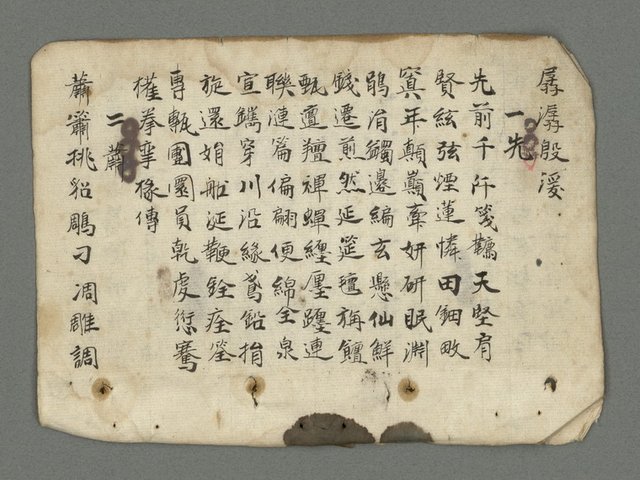 孱潺殷湲
一先
先前千阡箋韉天堅肩
賢絃弦煙蓮憐田鈿畋
窴年顛巔牽妍研眠淵
鵑涓蠲邊編玄懸仙鮮
錢遷煎然延筵氈旃鱣
甄邅羶禪蟬纏廛躔連
聯漣篇偏翩便綿全泉
宣鐫穿川沿緣鳶鉛捐
旋還娟船涎鞭銓痊筌
專甎團圜員乾虔愆騫
權拳攣椽傳
二蕭
蕭簫挑貂鵰刁凋雕調